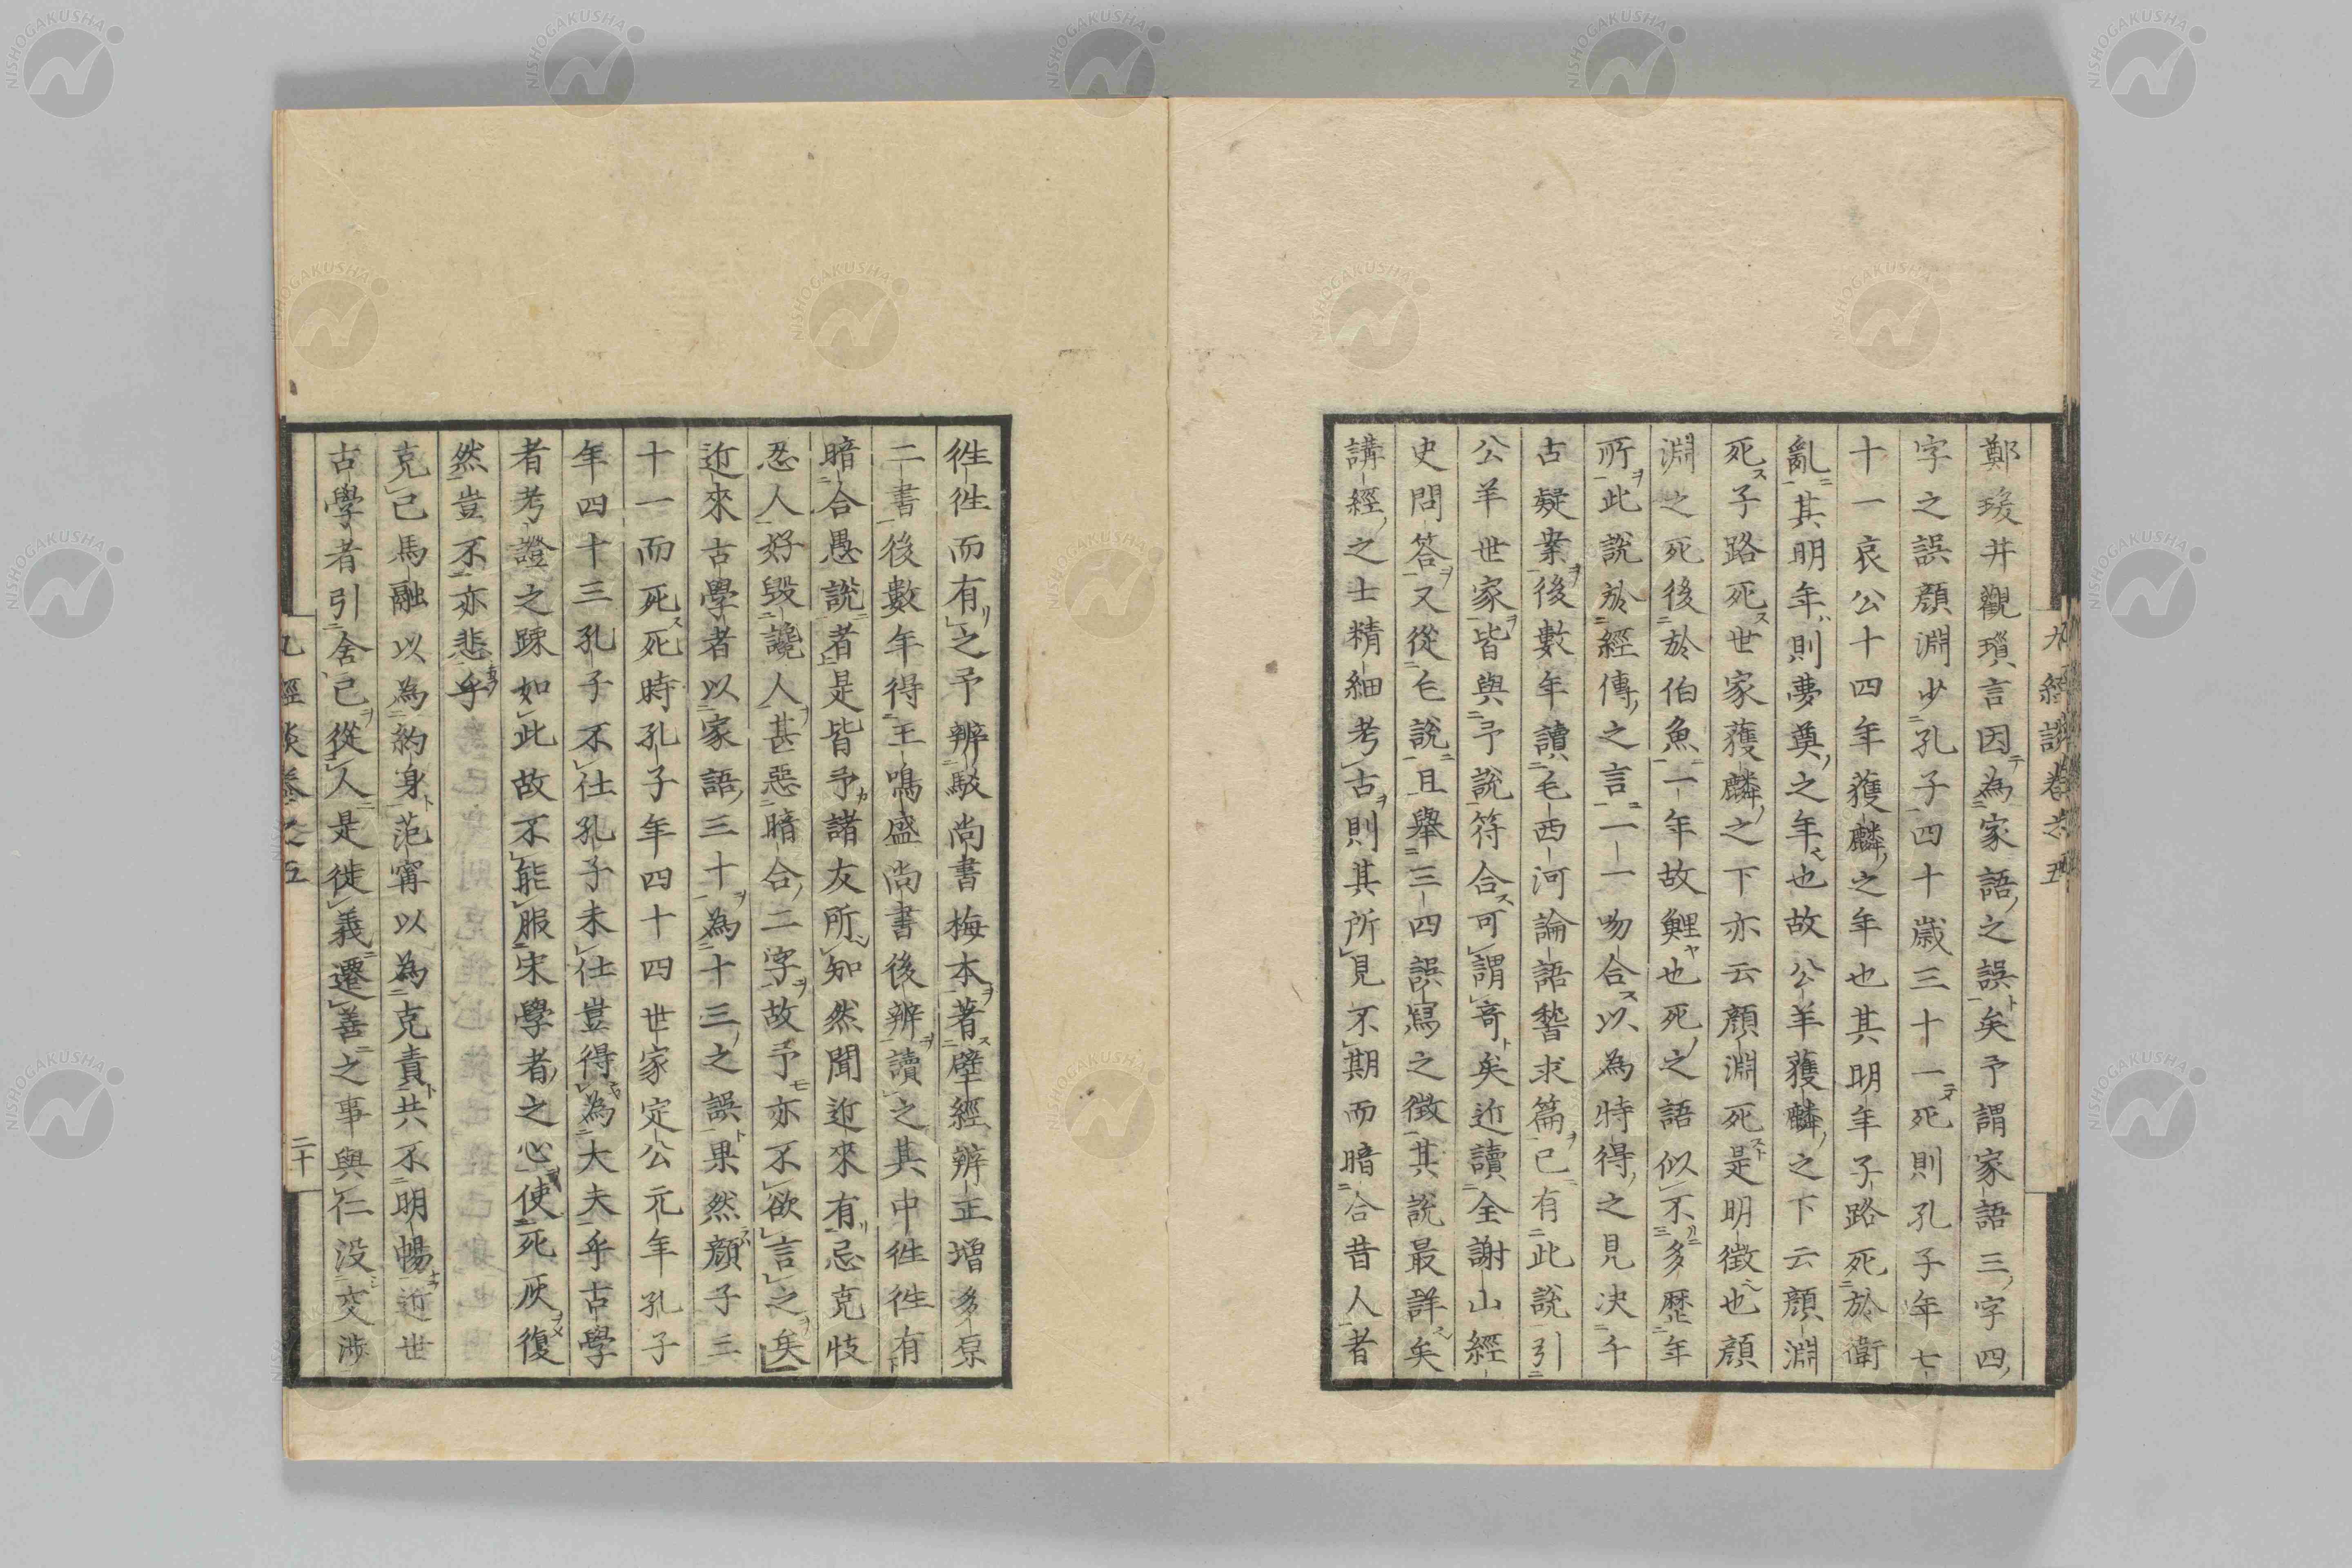 九經談卷之五
鄭瑗井觀瑣言因為家語之誤矣予謂家語三字四
字之誤顏淵少孔子四十歲三十一死則孔子年七
十一哀公十四年獲麟之年也其明年子路死於衛
亂其明年則夢奠之年也故公羊獲麟之下云顏淵
死子路死世家獲麟之下亦云顏淵死是明徵也顏
淵之死後於伯魚一年故鯉也死之語似不多歷年
所此說於經傳之言一一吻合以為特得之見决千
古疑案後數年讀毛西河論語稽求篇已有此說引
公羊世家皆與予說符合可謂奇矣近讀全謝山經
史問答又從毛說且舉三四誤寫之徵其說最詳矣
講經之士精細考古則其所見不期而暗合昔人者
徃徃而有之予辨駁尚書梅本著壁經辨正增多原
二書後數年得王鳴盛尚書後辨讀之其中徃徃有
暗合愚說者是皆予諸友所知然聞近來有忌克忮
忍人好毀讒人甚惡暗合二字故予亦不欲言之矣
近來古學者以家語三十為十三之誤果然顏子三
十一而死死時孔子年四十四世家定公元年孔子
年四十三孔子不仕孔子未仕豈得為大夫乎古學
者考證之踈如此故不能服宋學者之心使死灰復
然豈不亦悲乎
克己馬融以為約身范甯以為克責共不明暢近世
古學者引舍己從人是徒義遷善之事與仁没交涉
九經談卷之五
二十